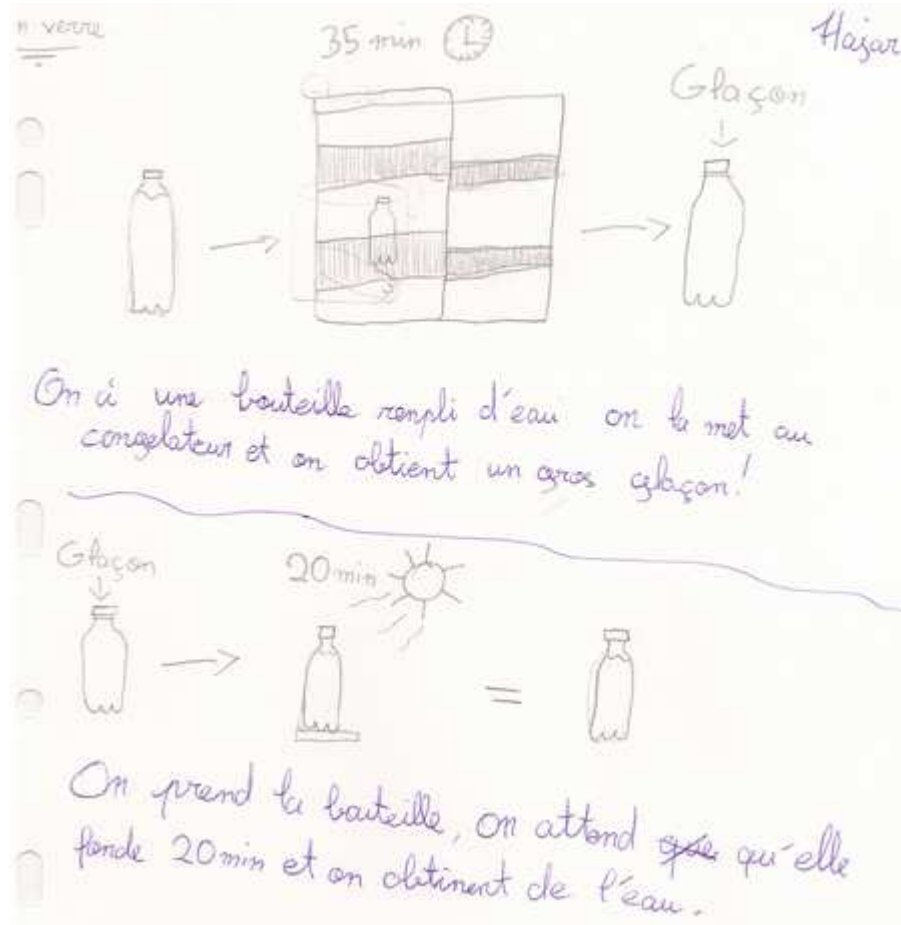 n verre
35 min
Hajar
Glaçon
On à une bouteille renpli d'eau on la met au
congelateur et on obtient un gros glaçon!
Glaçon
20 min
=
On prend la bouteille, on attend que qu'elle
fonde 20 min et on obtinent de l'eau.